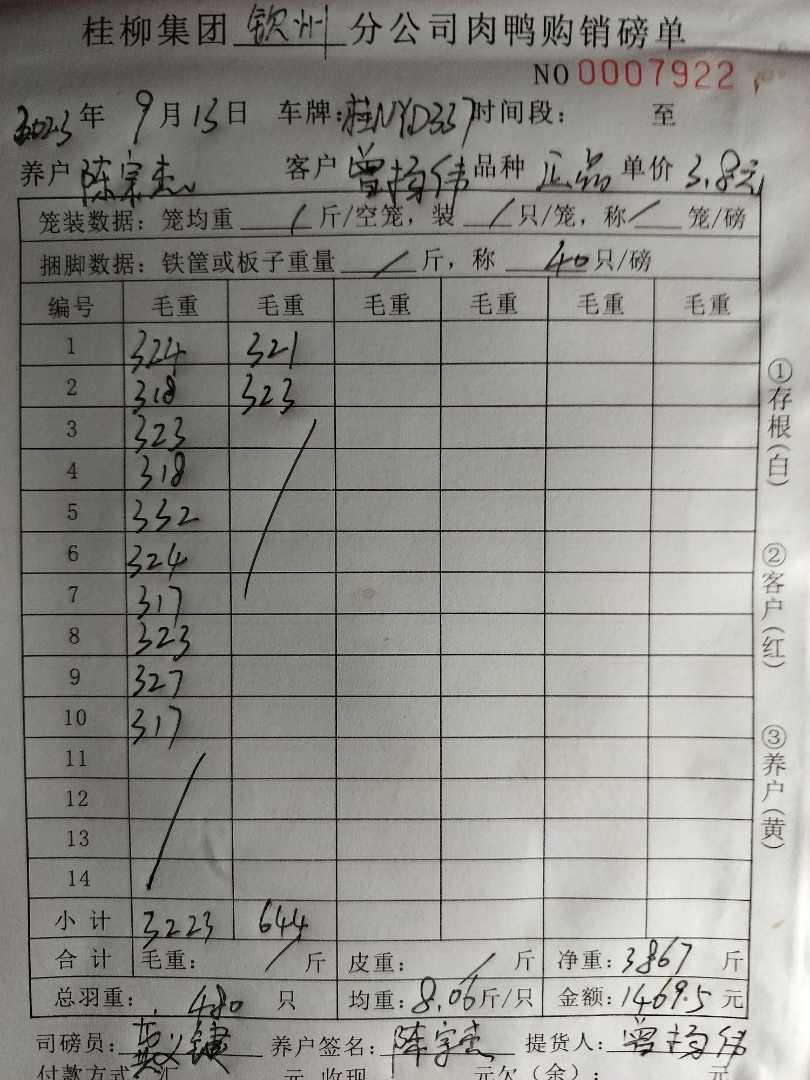 桂柳集团 钦州 分公司肉鸭购销磅单
NO 0007922
2023年 9月13日 车牌:桂NYD337 时间段: 至
养户 陈宗杰 客户 曾杨伟 品种 正品 单价 3.8元
笼装数据: 笼均重 / 斤/空笼, 装 / 只/笼, 称 / 笼/磅
捆脚数据: 铁筐或板子重量 / 斤, 称 40只/磅
编号 毛重 毛重 毛重 毛重 毛重 毛重
1 324 321
2 318 323
3 323
4 318
5 332
6 324
7 317
8 323
9 327
10 317
11
12
13
14
小计 3223 644
合计 毛重: / 斤 皮重: / 斤 净重: 3867 斤
总羽重: 480 只 均重: 8.06斤/只 金额: 1469.5 元
司磅员: 养户签名: 陈宗杰 提货人: 曾杨伟
付款方式 汇 元 收现 元欠(余): 元
①存根(白)
②客户(红)
③养户(黄)